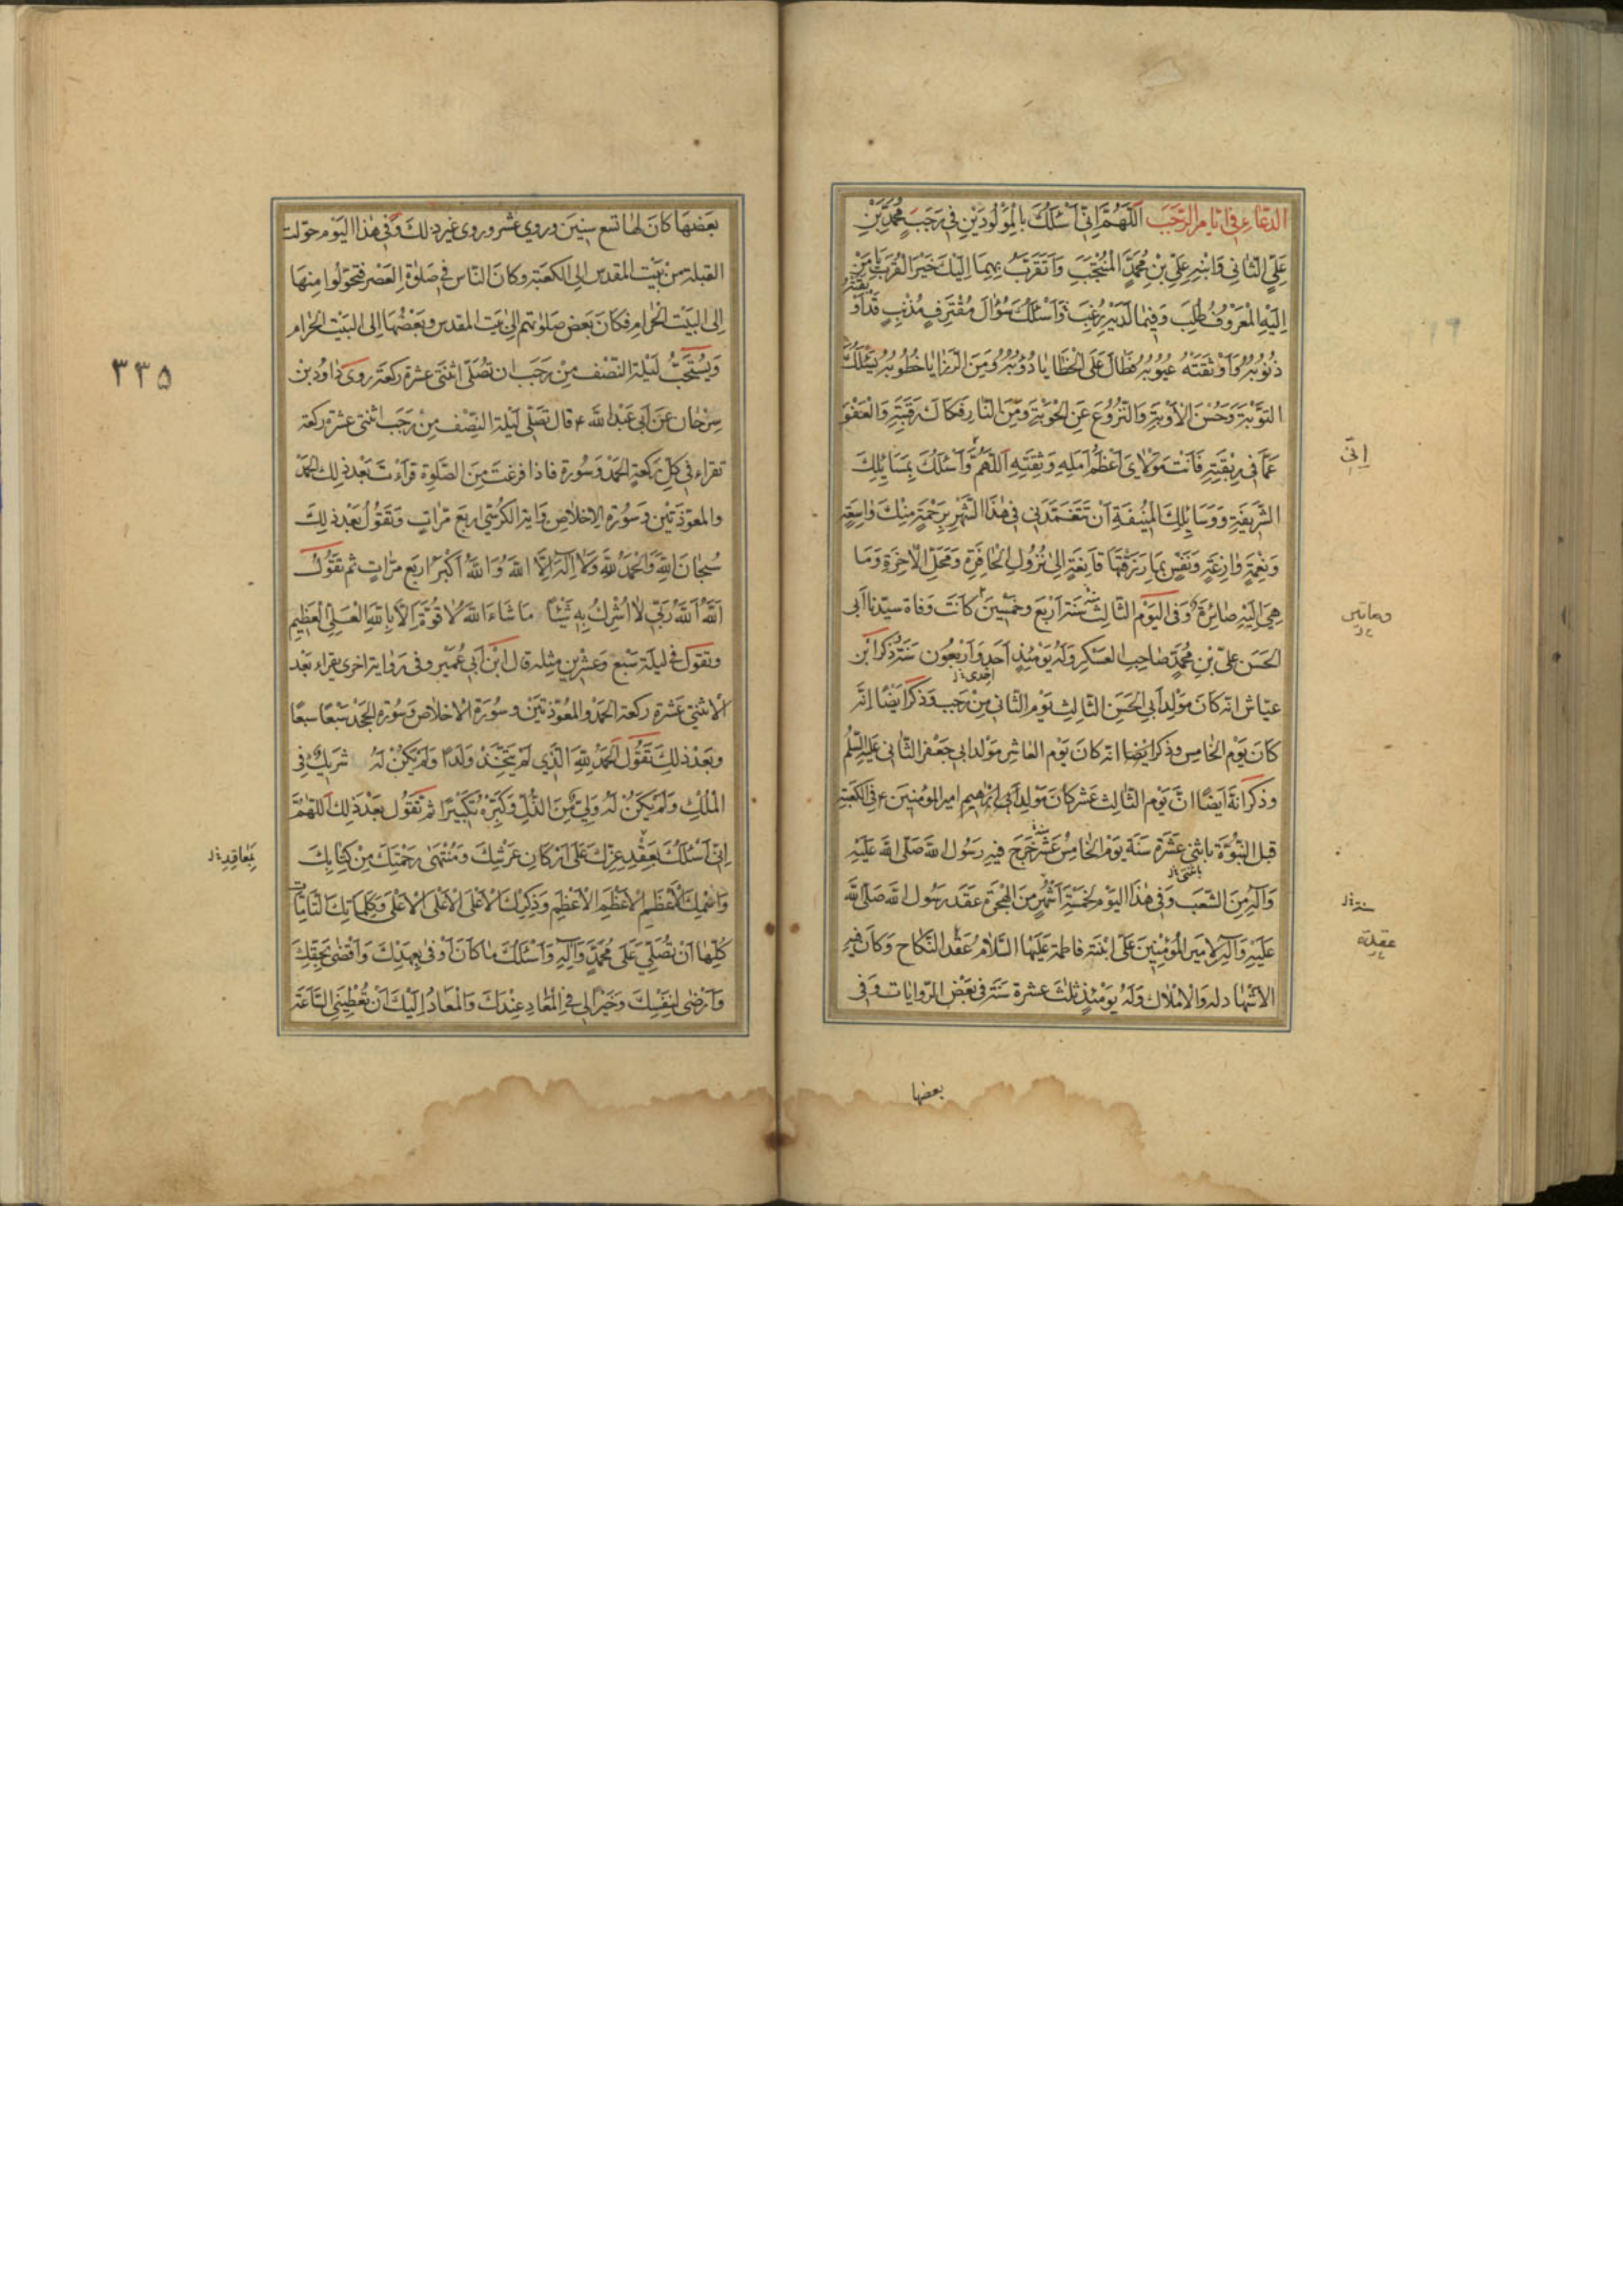 الدّعاء في ايّام الرّجب اَللّهُمَّ اِنّي اَسْئَلُكَ بِالْمَوْلُودَيْنِ في رَجَبٍ مُحَمَّدِ بْنِ
عَلِيٍّ الثّاني وَابْنِهِ عَلِيِّ بْنِ مُحَمَّدٍ الْمُنْتَجَبِ وَاَتَقَرَّبُ بِهِما اِلَيْكَ خَيْرَ الْقُرَبِ يا مَنْ
اِلَيْهِ الْمَعْرُوفُ طُلِبَ وَفيما لَدَيْهِ رُغِبَ وَاَسْئَلُكَ سُؤالَ مُقْتَرِفٍ مُذْنِبٍ قَدْ اَوْ
بقته
ذُنُوبُهُ وَاَوْثَقَتْهُ عُيُوبُهُ فَطالَ عَلَى الْخَطايا دُؤُوبُهُ وَمِنَ الرَّزايا خُطُوبُهُ يَسْئَلُكَ
التَّوْبَةَ وَحُسْنَ الْاَوْبَةِ وَالنُّزُوعَ عَنِ الْحَوْبَةِ وَمِنَ النّارِ فَكاكَ رَقَبَتِهِ وَالْعَفْوَ
عَمّا في رِبْقَتِهِ فَاَنْتَ مَوْلايَ اَعْظَمُ اَمَلِهِ وَثِقَتِهِ اَللّهُمَّ وَاَسْئَلُكَ بِمَسائِلِكَ
اِنّي
الشَّريفَةِ وَوَسائِلِكَ الْمُنيفَةِ اَنْ تَتَغَمَّدَني في هٰذَا الشَّهْرِ بِرَحْمَةٍ مِنْكَ واسِعَةٍ
وَنِعْمَةٍ وازِعَةٍ وَنَفْسٍ بِما رَزَقْتَها قانِعَةٍ اِلى نُزُولِ الْحافِرَةِ وَمَحَلِّ الْاٰخِرَةِ وَما
هِيَ اِلَيْهِ صائِرَةٌ وَفي اليَوْم الثّالِث سَنَة اَرْبَع وخَمْسينَ كانَت وَفاة سيّدنا اَبي
الحَسَن عَليّ بْنِ مُحَمَّدٍ صاحِبِ العَسْكَرِ وَلَهُ يَوْمَئِذٍ اَحَد وَاَرْبَعُونَ سَنَةً ذكر ابْن
احدى
عيّاش انّه كانَ مَوْلِد اَبي الحَسَنِ الثّالِثِ يَوْم الثّاني مِنْ رَجَب وَذكَرَ ايْضًا انَّه
كانَ يَوْم الخامِس وذكر ايْضا انّه كانَ يَوْم العاشِر مَوْلد ابي جَعْفَر الثّاني عَلَيْهِ السّلم
وذكَرَ انَّه اَيضًا انَّ يَوْم الثّالِث عَشَر كانَ مَوْلِد اَمير المومنينَ ع في الكَعْبَةِ
قبل النّبُوَّة باثني عَشَرَة سَنَة يَوْم الخامِس عَشَر خَرَجَ فيهِ رَسُول اللهِ صَلّى الله عَلَيْهِ
وَآلِهِ مِنَ الشّعَب وَفي هٰذَا اليَوْم لِخَمْسَة اَشْهُرٍ مِنَ الهِجْرَة عَقَدَ رَسُول الله صَلّى اللهُ
عَلَيْهِ وَآلِهِ لِاَميرِ المُؤْمِنينَ عَلى ابْنَتِه فاطمة عَلَيْهَا السَّلامُ عَقْد النّكاح وَكانَ فيهِ
عقدة
الاشْهاد له وَالاِمْلاك وَلَهُ يَوْمَئِذٍ ثَلث عشرة سَنَة في بَعْض الرّوايات وَفي
بعضها
٣٣٥
بَعَضِها كانَ لها تسع سِنينَ وروي عَشر وروى غير ذٰلك وَفي هٰذا اليَوْم حوّلت
القبلة مِنْ بَيْت المقدس الى الكَعْبَة وكانَ النّاس في صَلوة العَصْر فتحوّلُوا مِنها
اِلَى البَيْت الْحَرام فكانَ بَعض صَلوتهم اِلى بَيْت المقدس وبَعْضُها اِلى البَيْت الْحَرام
وَيُسْتَحَبُّ لَيْلة النّصْف مِنْ رَجَب ان تُصَلّى اثنتى عشرة ركعة روى داودُ بْن
سِرْحان عَنْ اَبي عَبْد الله ع قال تصَلّى لَيْلة النّصْف مِنْ رَجَب اثنتى عشرة ركعة
تقراء في كُلّ رَكعةٍ الحَمْد وَسُورة فاذا فرغتَ مِنَ الصَّلوة قرَأتَ بَعْد ذٰلك الحَمْدَ
والمعوّذتَيْن وَسُورة الاخلاص وَاية الكُرْسيّ اربَع مَرّاتٍ وَتَقولُ بَعْد ذٰلِكَ
سُبْحانَ اللهِ وَالْحَمْدُ لِلّهِ وَلا اِلٰهَ اِلَّا اللهُ وَاللهُ اَكْبَرُ اربَع مرّاتٍ ثم تقُولُ
اَللهُ اَللهُ رَبّي لا اُشْرِكُ بِهِ شَيْئًا ما شاءَ اللهُ لا قُوَّةَ اِلّا بِاللهِ الْعَلِيّ الْعَظيمِ
وتقول في ليلة سَبْع وَعشرين مثله قال ابْن اَبي عُمَيْر وفي رَواية اخرى يقراء بَعْد
الاثنتي عَشرة ركعة الحَمْد والمُعَوّذتَيْن وسُورَة الاخلاص وَسُورة الجحْد سَبْعًا سبعًا
وبَعْد ذٰلِكَ تَقُولُ اَلْحَمْدُ لِلّهِ الَّذي لَمْ يَتَّخِذْ وَلَدًا وَلَمْ يَكُنْ لَهُ شَريكٌ في
الْمُلْكِ وَلَمْ يَكُنْ لَهُ وَلِيٌّ مِنَ الذُّلِّ وَكَبِّرْهُ تَكْبيرًا ثمّ تَقُول بَعْدَ ذٰلِكَ اَللّهُمَّ
اِنّي اَسْئَلُكَ بِعَقْدِ عِزِّكَ عَلى اَرْكانِ عَرْشِكَ وَمُنْتَهى رَحْمَتِكَ مِنْ كِتابِكَ
بِمَعاقِدِ
وَاسْمِكَ الْاَعْظَمِ الْاَعْظَمِ الْاَعْظَمِ وَذِكْرِكَ الْاَعْلَى الْاَعْلَى الْاَعْلى وَبِكَلِماتِكَ التّامّاتِ
كُلِّها اَنْ تُصَلِّيَ عَلى مُحَمَّدٍ وَآلِهِ وَاَسْئَلُكَ ما كانَ اَوْفى بِعَهْدِكَ وَاَقْضى بِحَقِّكَ
وَاَرْضى لِنَفْسِكَ وَخَيْرًا لي فِي الْمَعادِ عِنْدَكَ وَالْمَعادُ اِلَيْكَ اَنْ تُعْطِيَنِي السّاعَةَ